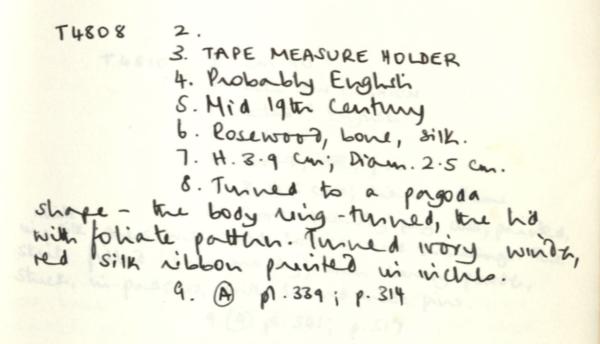 T4808 2.
3. TAPE MEASURE HOLDER
4. Probably English
5. Mid 19th Century
6. Rosewood, bone, silk.
7. H. 3.9 cm; Diam. 2.5 cm.
8. Turned to a pagoda
shape - the body ring-turned, the lid
with foliate pattern. Turned ivory winder,
red silk ribbon printed in inches.
9. Ⓐ pl. 339; p. 314